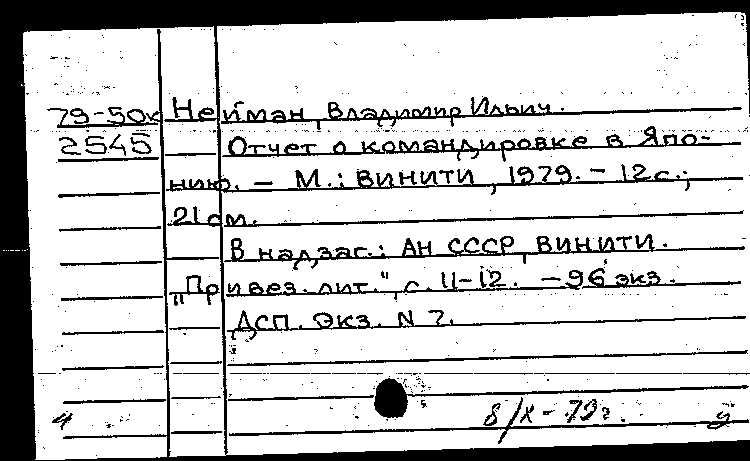 79-50к Нейман, Владимир Ильич.
2545 Отчет о командировке в Япо-
нию. – М.: ВИНИТИ, 1979. – 12с.;
21см.
В надзаг.: АН СССР, ВИНИТИ.
"Привез. лит.", с. 11-12. – 96 экз.
ДСП. Экз. N 7.
4 8/X-79г. 9